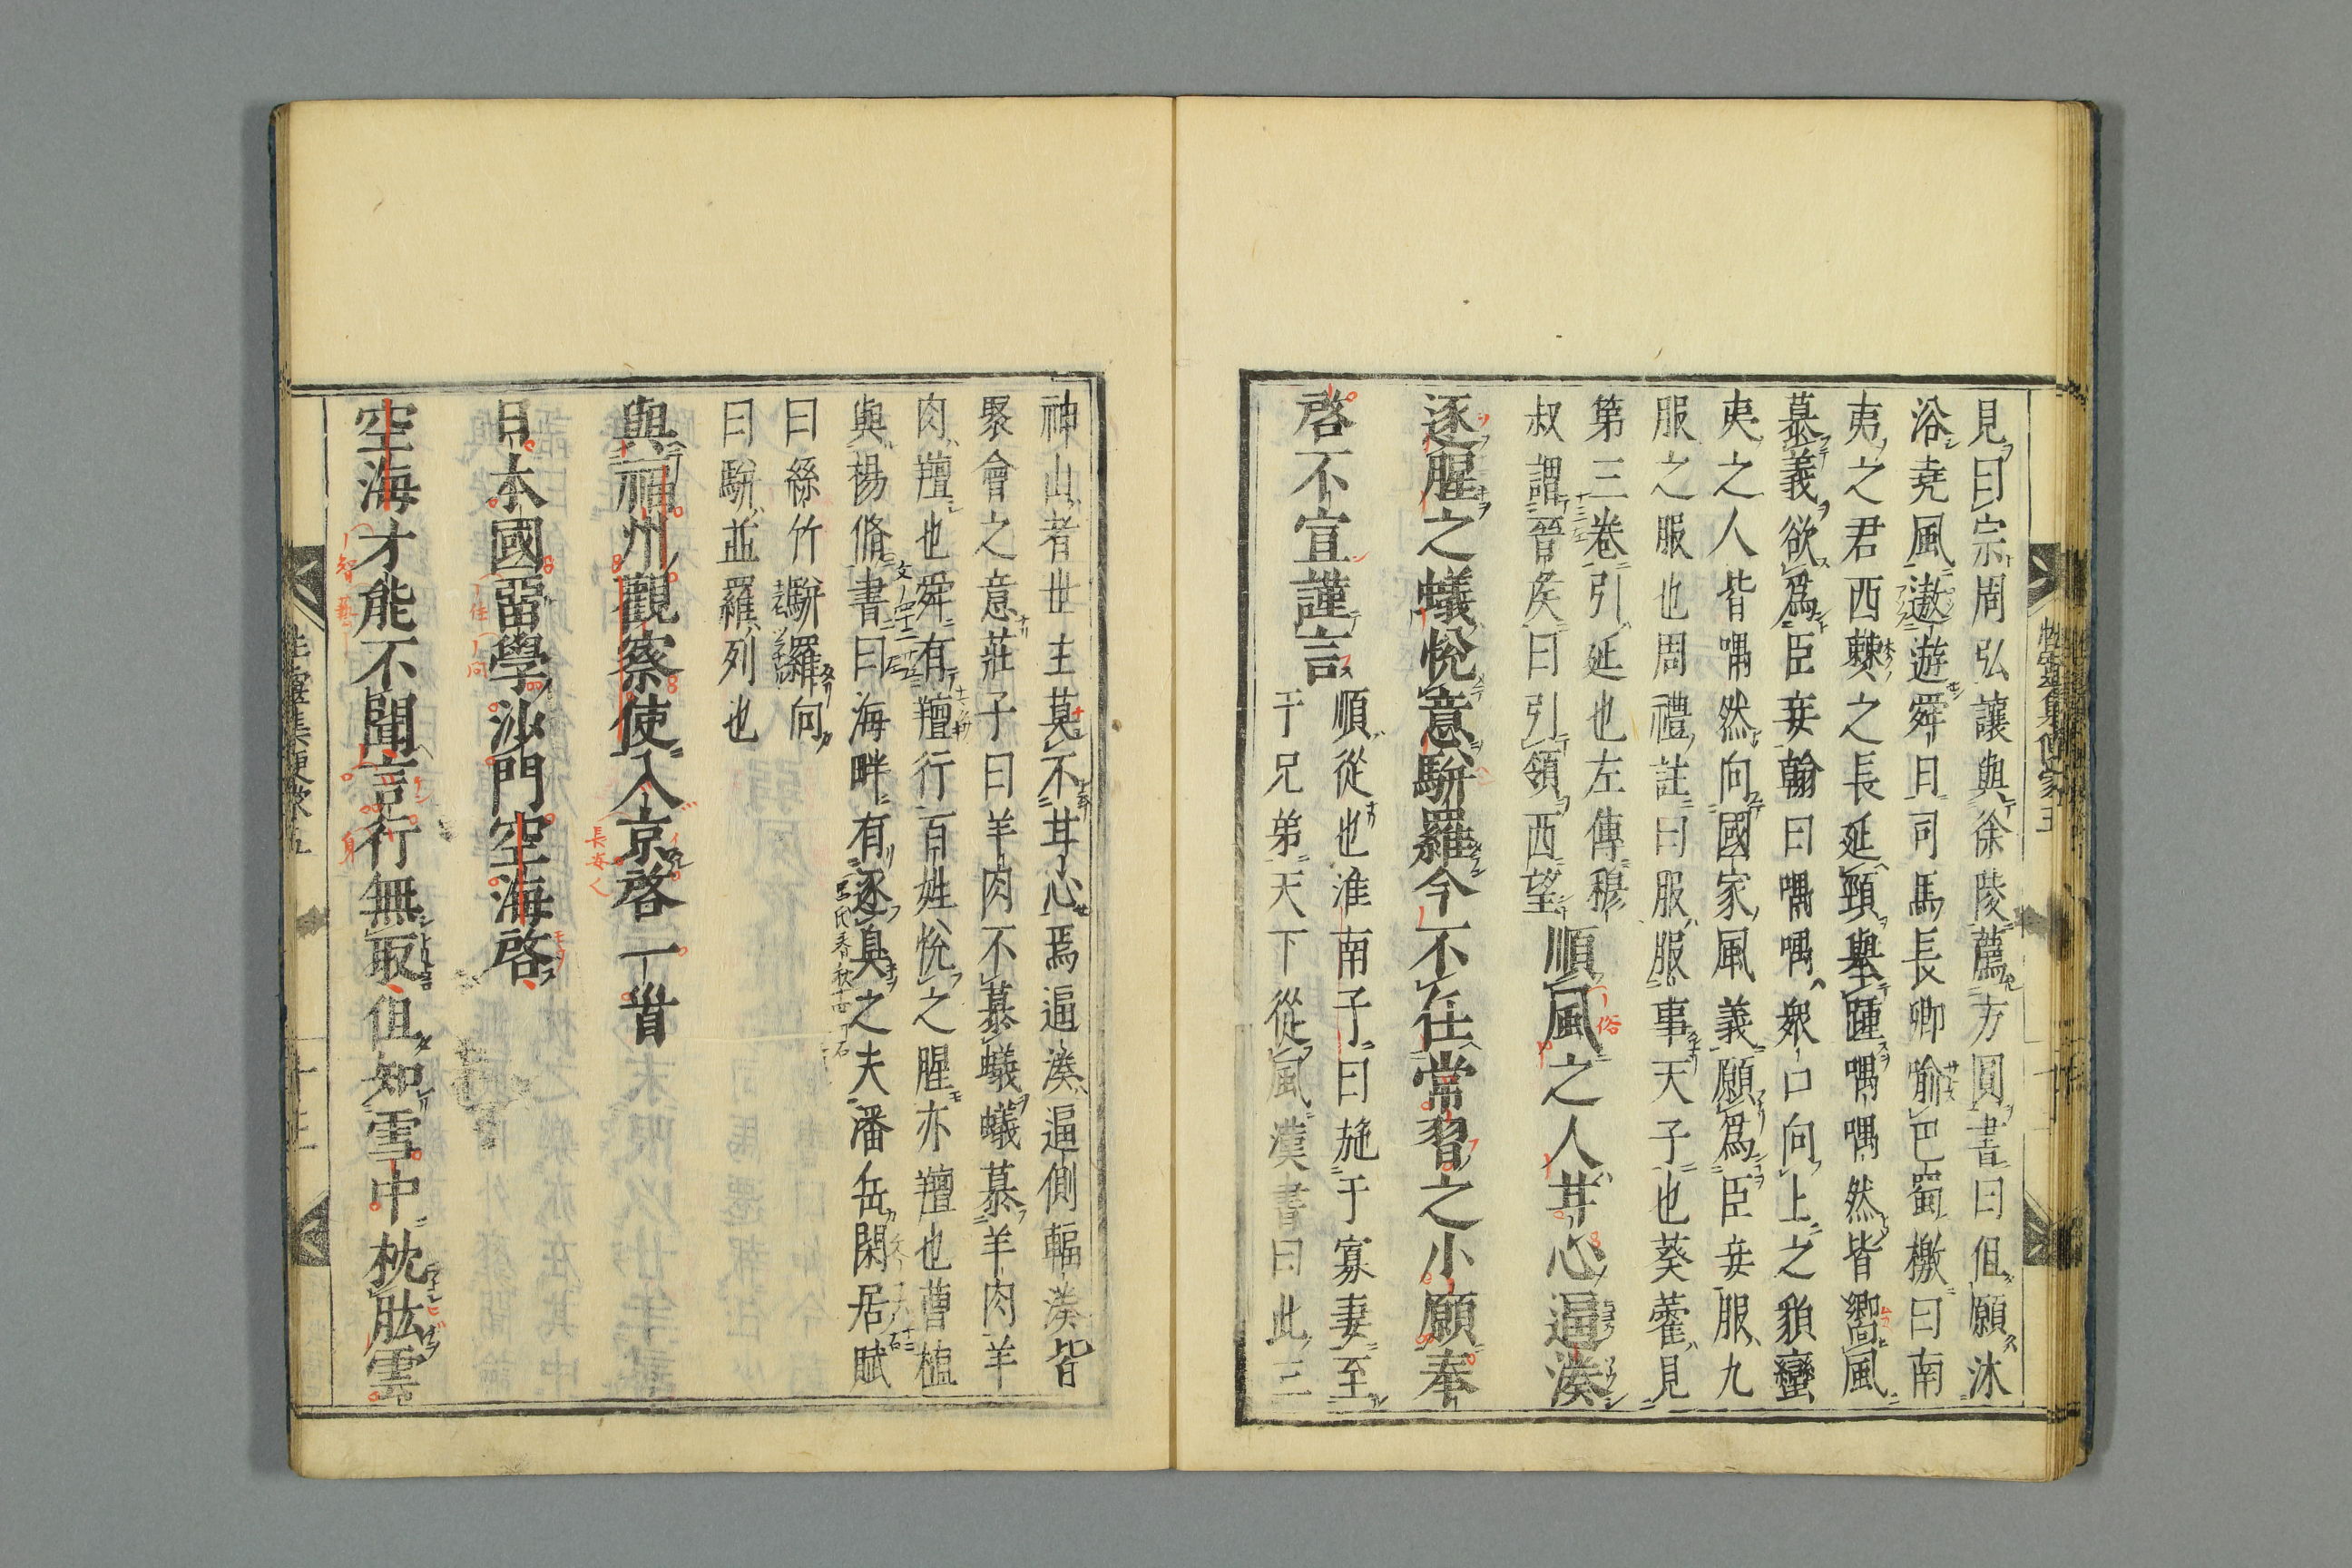 見曰宗周弘讓與徐陵薦方圓書曰但願沐
浴堯風遨遊舜日司馬長卿喻巴蜀檄曰南
夷之君西僰之長延頸擧踵喁喁然皆嚮風
慕義欲爲臣妾翰曰喁喁衆口向上之貌蠻
夷之人皆喁然向國家風義願爲臣妾服九
服之服也周禮註曰服服事天子也葵藿見
第三卷引延也左傳穆
叔謂晉矦曰引領西望
順風之人甘心逼湊
逐腥之蟻悅意駢羅今不任常習之小願奉
啓不宣謹言
順從也淮南子曰施于寡妻至
于兄弟天下從風漢書曰此三
神山者世主莫不甘心焉逼湊逼側輻湊皆
聚會之意莊子曰羊肉不慕蟻蟻慕羊肉羊
肉羶也舜有羶行百姓悅之腥亦羶也曹植
與楊脩書曰海畔有逐臭之夫潘岳閑居賦
曰絲竹駢羅向
曰駢並羅列也
與福州觀察使入京啓一首
日本國留學沙門空海啓
空海才能不聞言行無取但知雪中枕肱雲